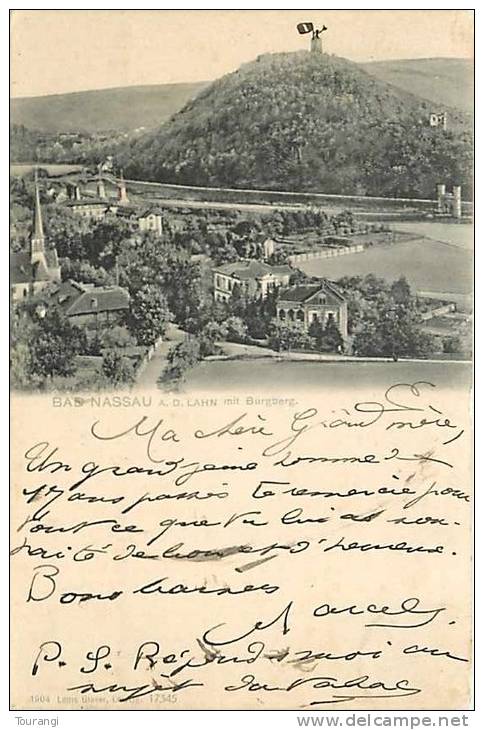 BAD NASSAU A. D. LAHN mit Burgberg.
Ma chère Grand mère,
Un grand jeune homme de
17 ans passés te remercie pour
tout ce que tu lui as sou-
haité de bon et d'heureux.
Bons baisers
Marcel
P. S. Réponds moi au
sujet du tabac
1904 Louis Glaser, Leipzig. 17345
Tourangi
http://www.delcampe.net